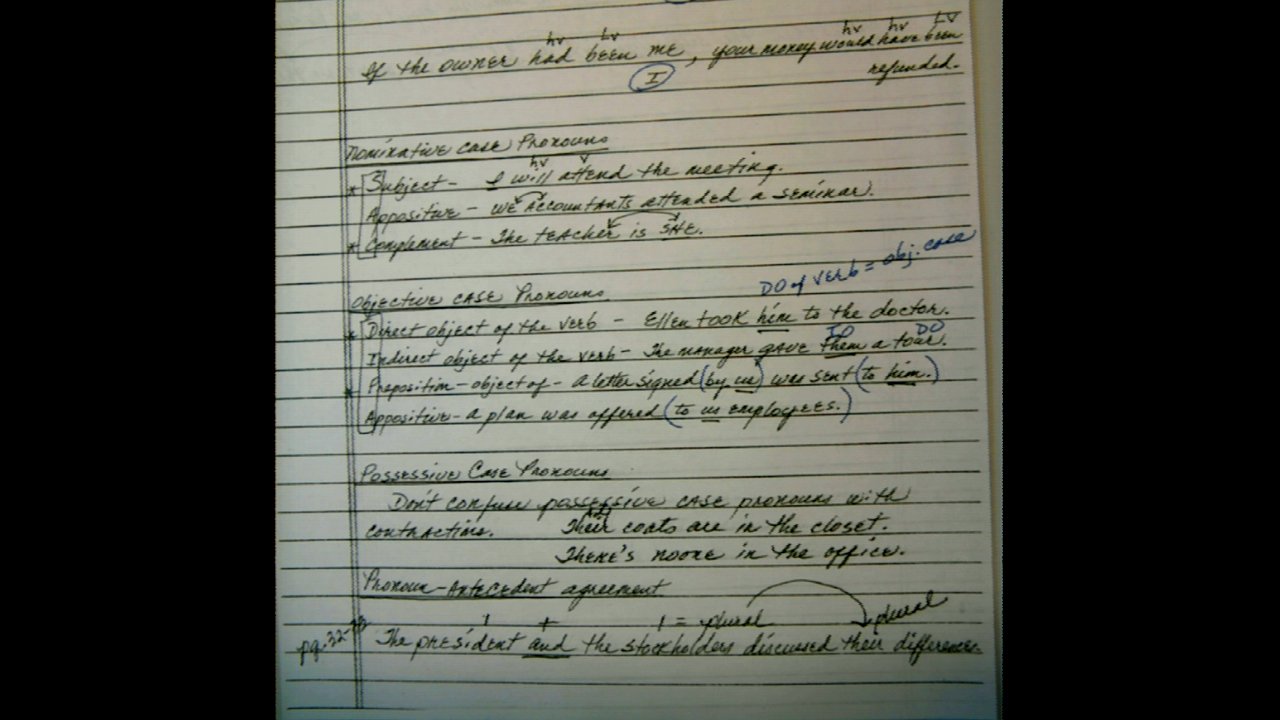 hv hv hv hv hv
If the owner had been me, your money would have been
I refunded.
Nominative Case Pronouns
hv v
* Subject - I will attend the meeting.
Appositive - We Accountants attended a seminar.
* Complement - The teacher is SHE.
DO of verb = obj. case
Objective Case Pronouns
* Direct object of the verb - Ellen took him to the doctor.
IO DO
Indirect object of the verb - The manager gave them a tour.
* Preposition - object of - a letter signed (by us) was sent (to him.)
Appositive - a plan was offered (to us employees.)
Possessive Case Pronouns
Don't confuse possessive case pronouns with
contractions. Their coats are in the closet.
There's noone in the office.
Pronoun-Antecedent agreement
1 + 1 = plural plural
pg. 32- The president and the stockholders discussed their differences.